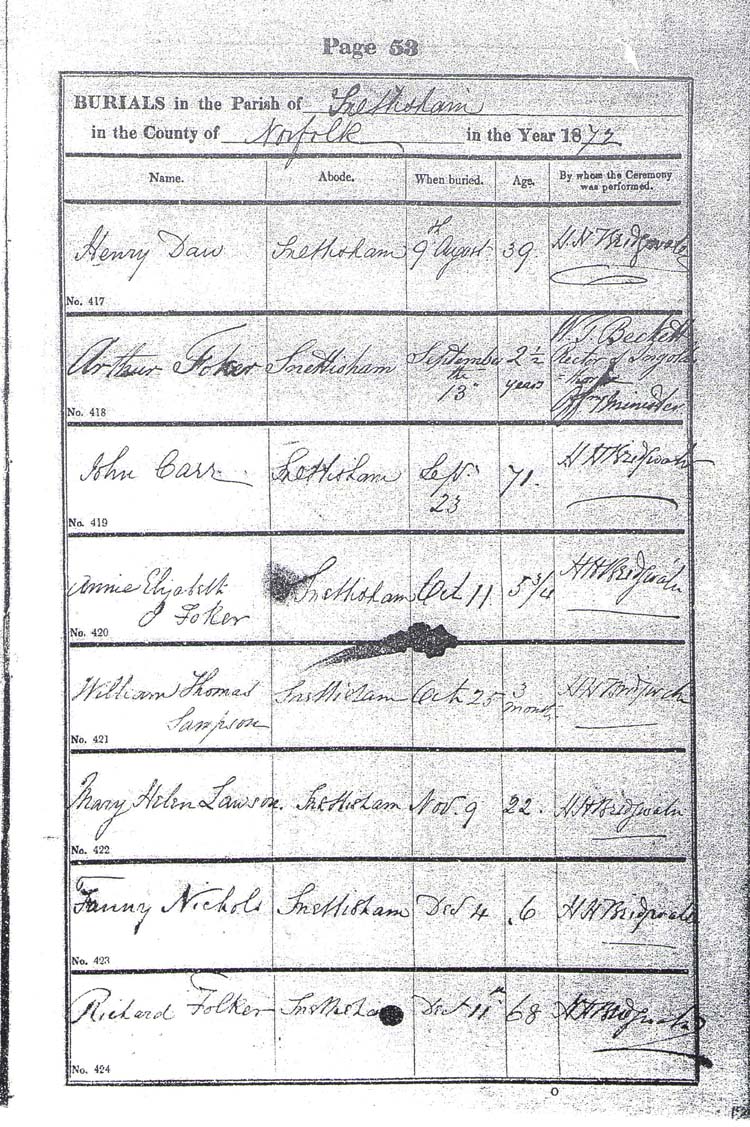 Page 53
BURIALS in the Parish of Snettisham
in the County of Norfolk in the Year 1872
Name. Abode. When buried. Age. By whom the Ceremony was performed.
Henry Daw Snettisham 9th August 39. H H Bridgwater
No. 417
Arthur Foker Snettisham September 13th 2½ years W. T. Beckett Rector of Ingoldisthorpe Minister
No. 418
John Carr Snettisham Sept. 23 71. H H Bridgwater
No. 419
Annie Elizabeth Foker Snettisham Oct 11 5 3/4 H H Bridgwater
No. 420
William Thomas Sampson Snettisham Oct 25 3 months H H Bridgwater
No. 421
Mary Helen Lawson. Snettisham Nov. 9 22. H H Bridgwater
No. 422
Fanny Nichols Snettisham Dec 4 6 H H Bridgwater
No. 423
Richard Folker Dec 11th 68 H H Bridgwater
No. 424